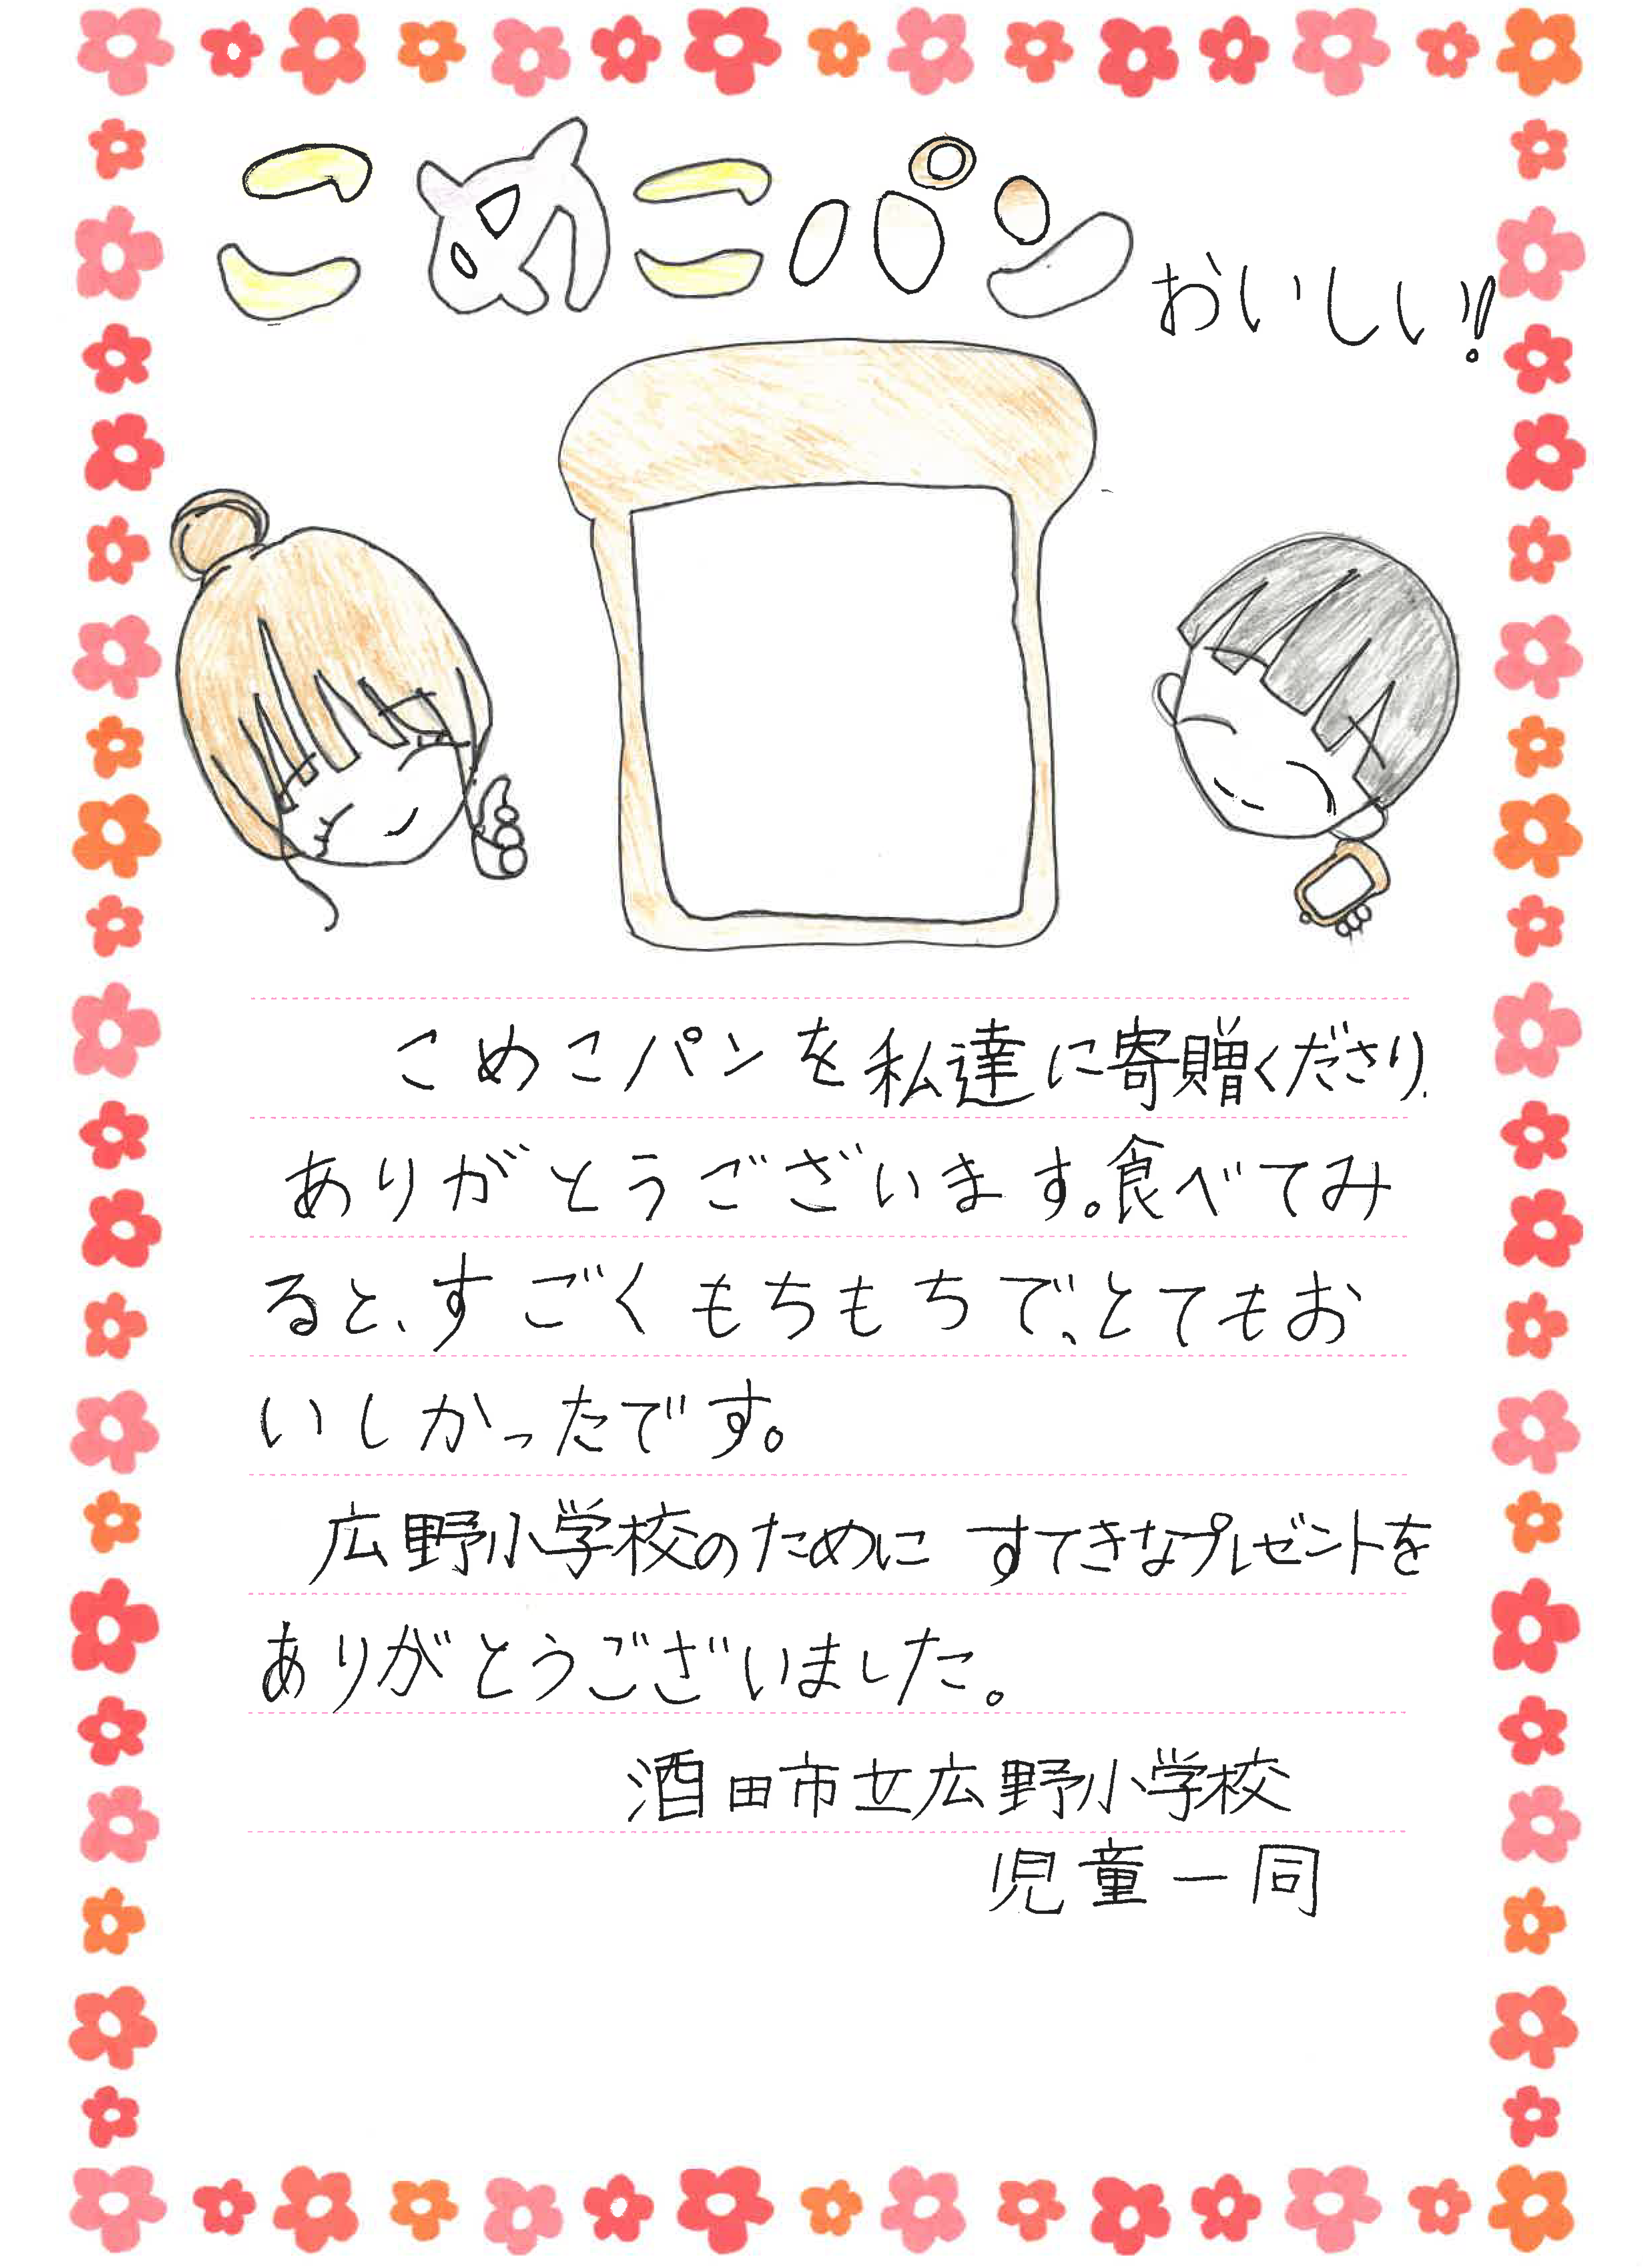 こめこパン おいしい!!
こめこパンを私達に寄贈くださり、
ありがとうございます。食べてみ
ると、すごくもちもちで、とてもお
いしかったです。
広野小学校のために すてきなプレゼントを
ありがとうございました。
酒田市立広野小学校
児童一同